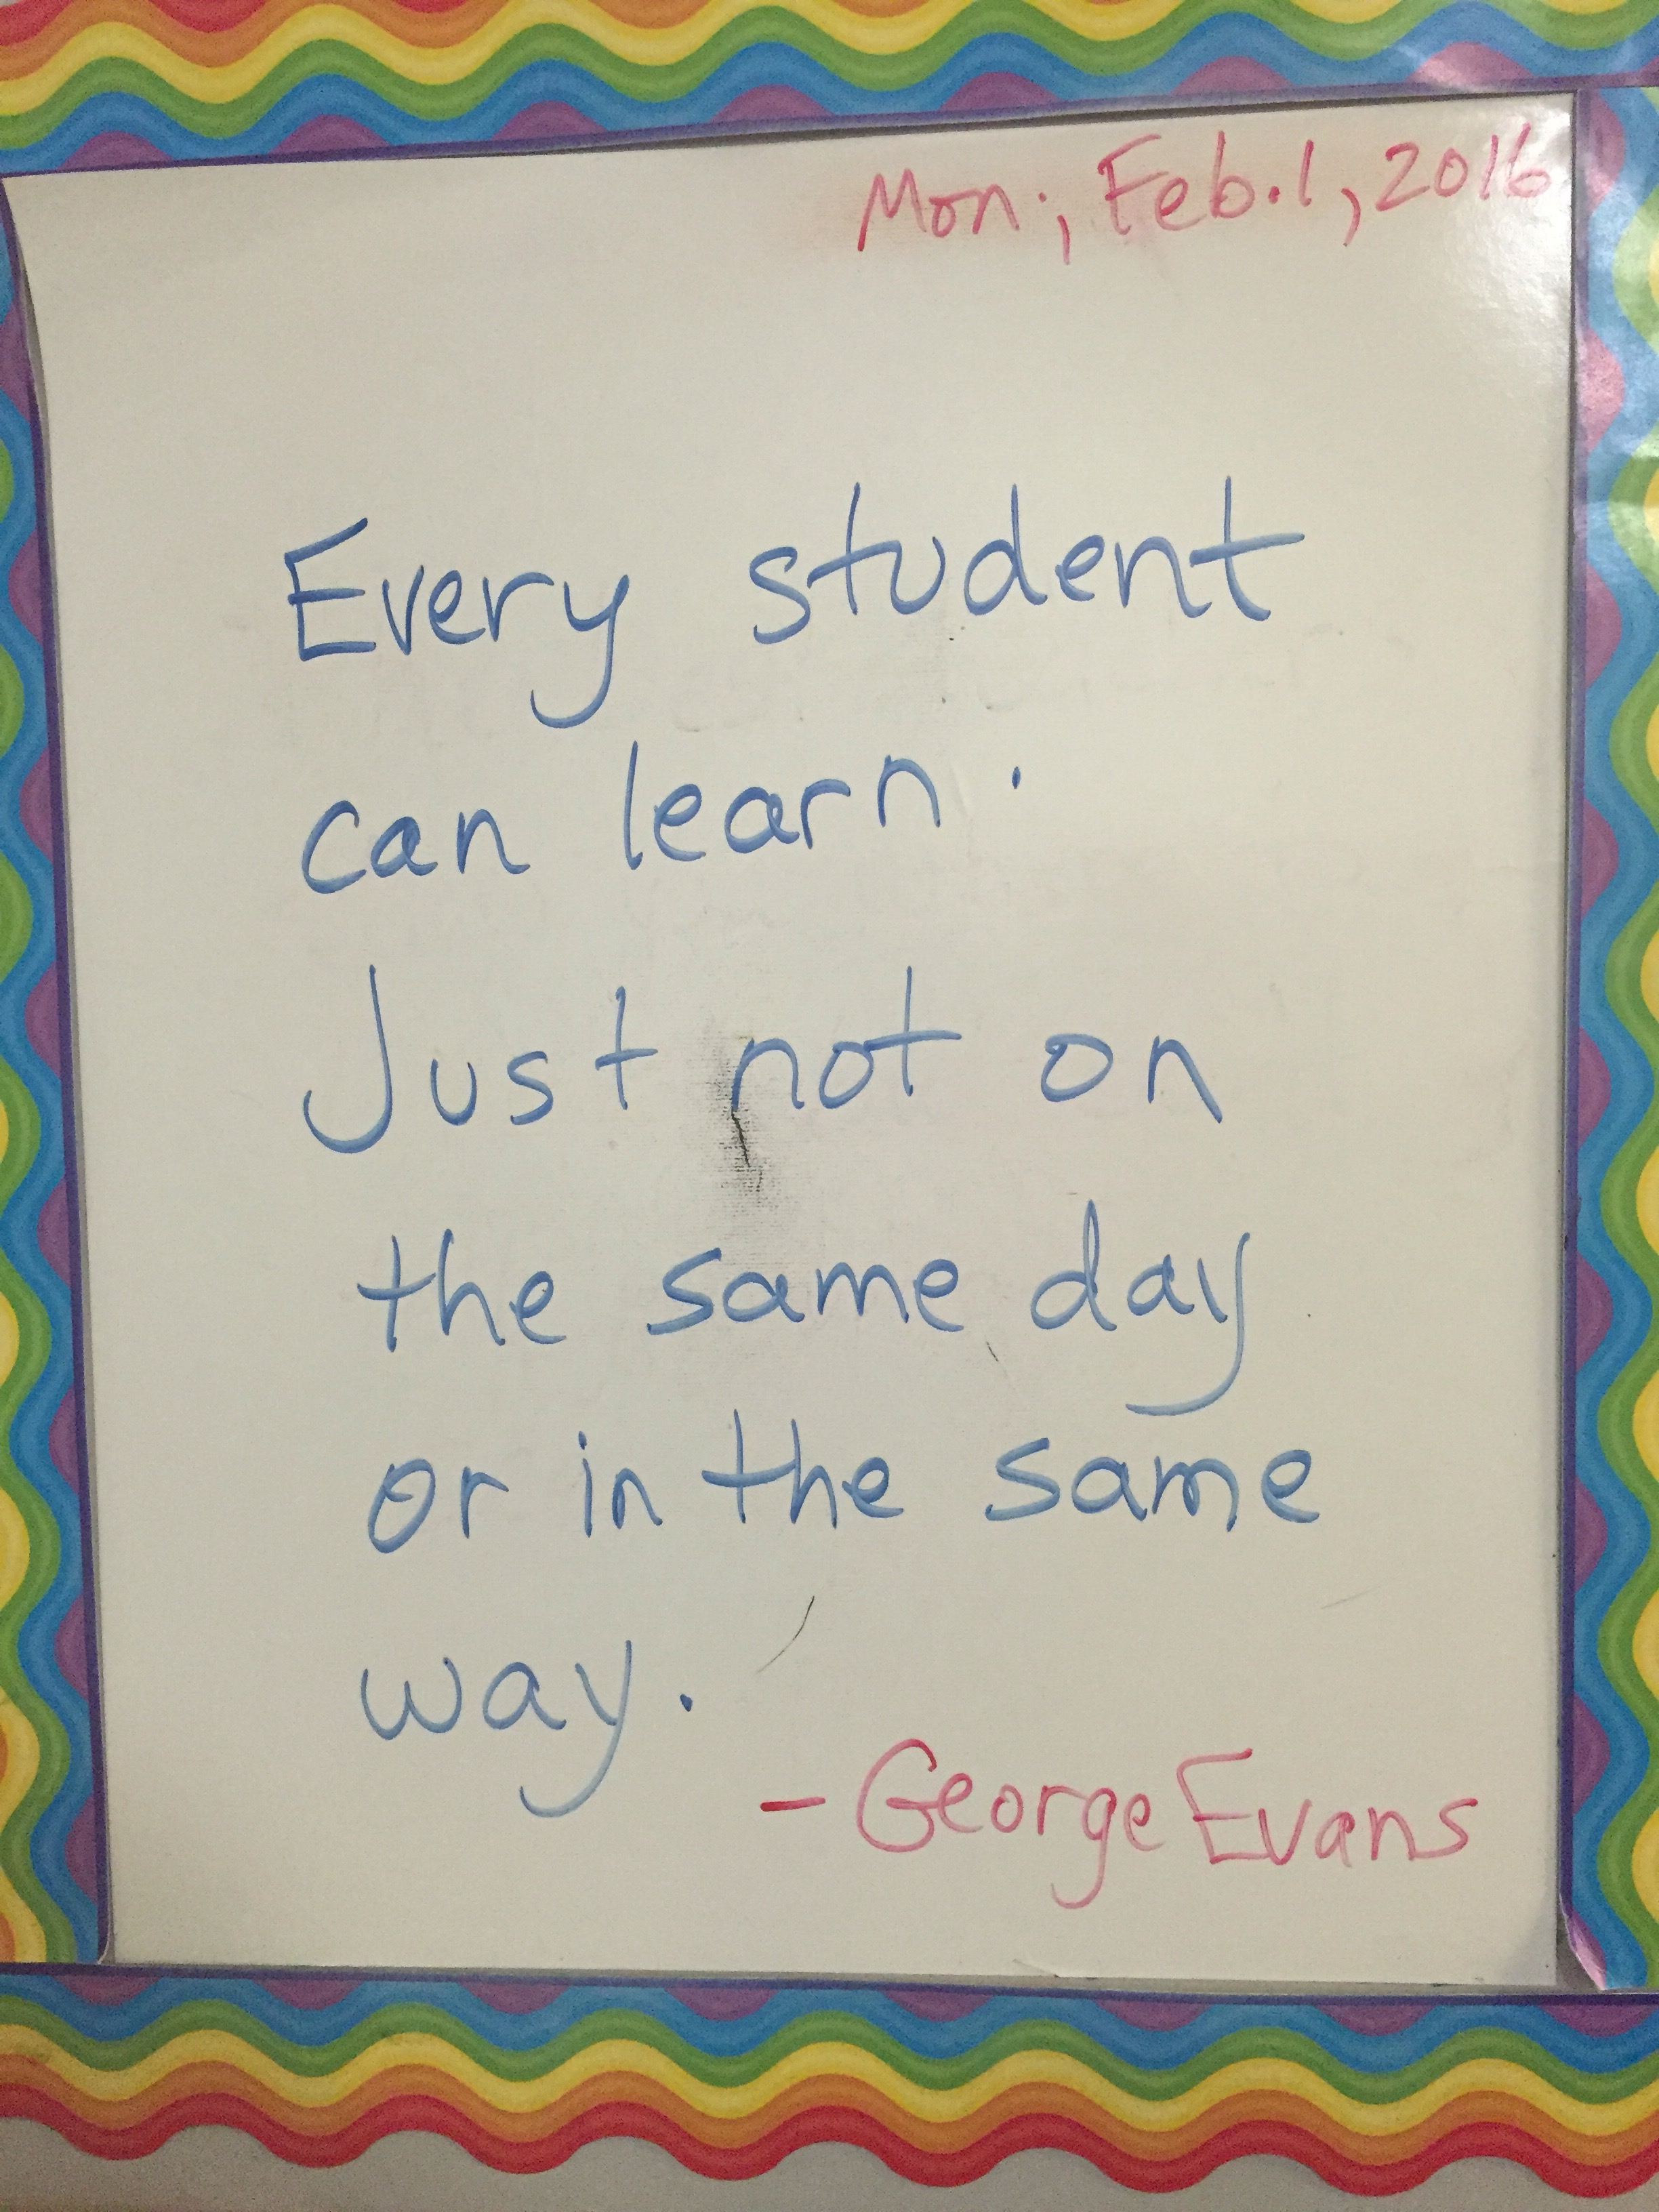 Mon., Feb. 1, 2016
Every student
can learn.
Just not on
the same day
or in the same
way.
- George Evans